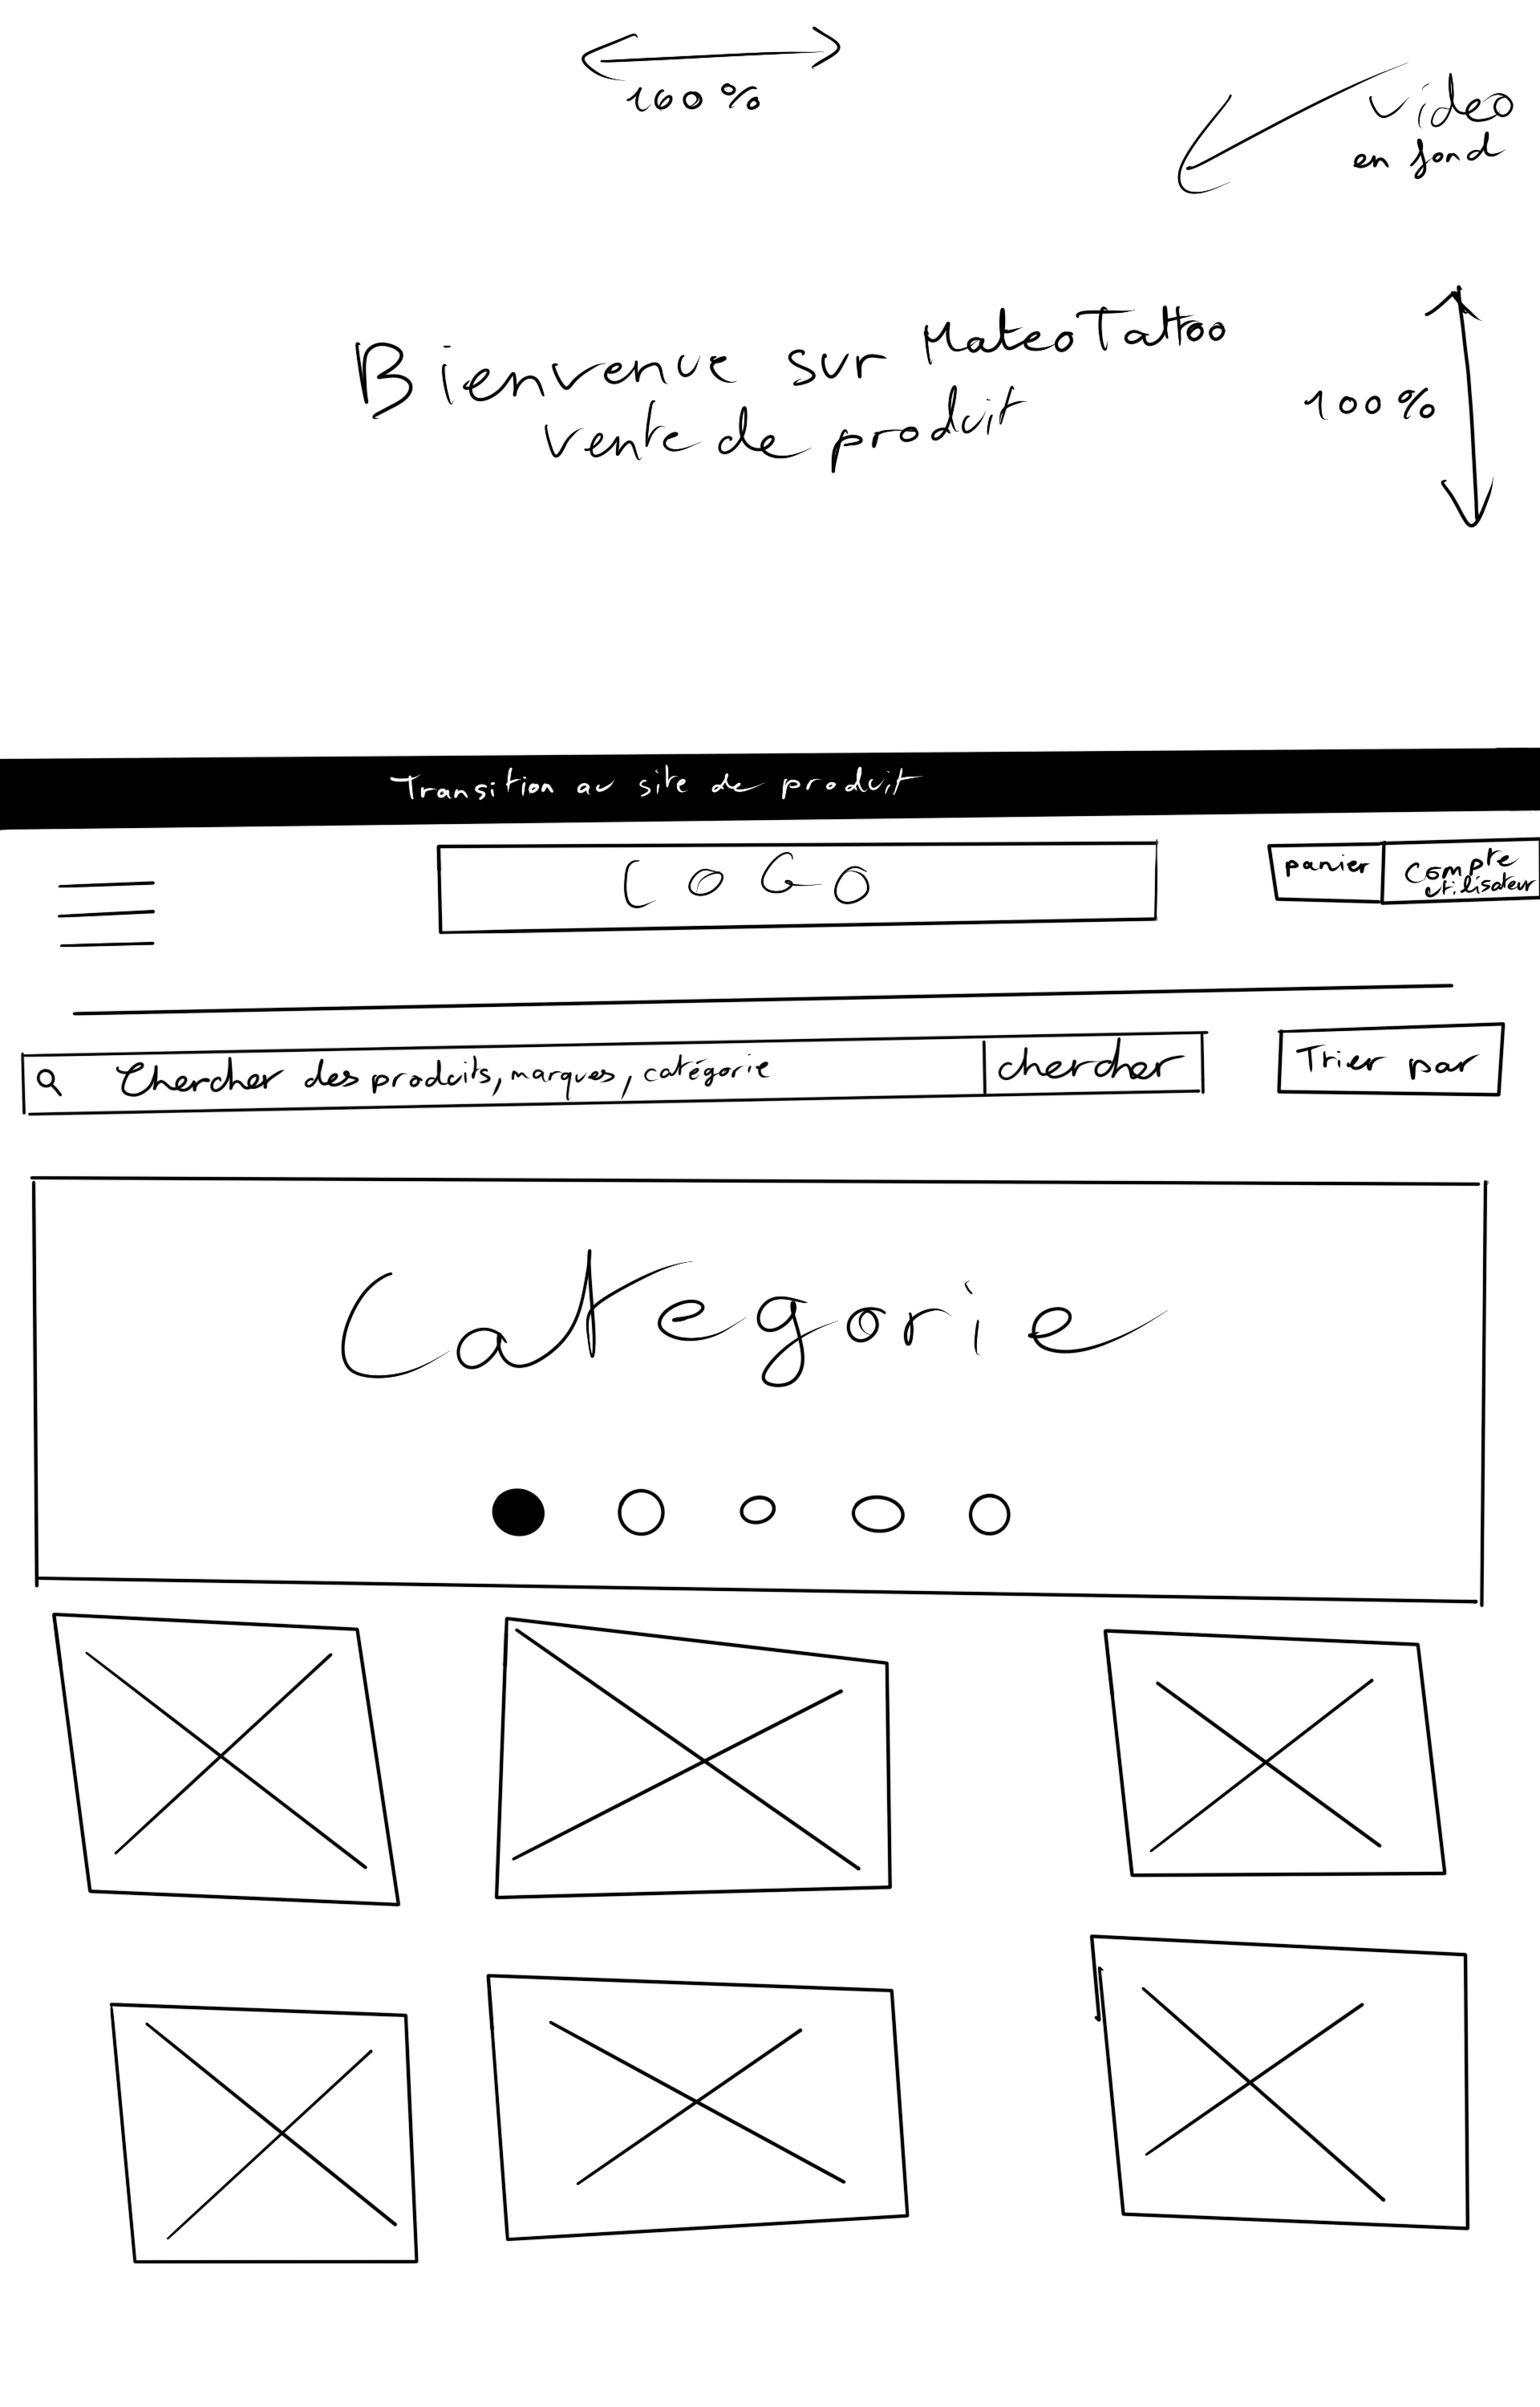 100%
video
en fond
Bienvenue sur MateoTattoo
vente de produit
100%
Transition au site de produit
LOGO
panier
Compte
utilisateur
Chercher des produits, marques, catégorie
chercher
Trier par
Categorie